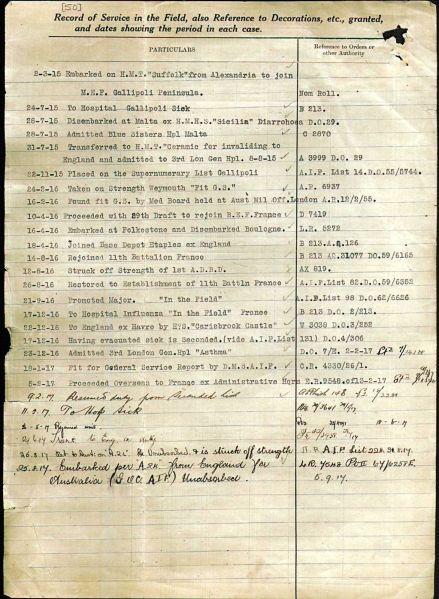 [50]
Record of Service in the Field, also Reference to Decorations, etc., granted,
and dates showing the period in each case.
PARTICULARS
Reference to Orders or
other Authority
2-3-15 Embarked on H.M.T."Suffolk"from Alexandria to join
M.E.F. Gallipoli Peninsula. Nom Roll.
24-7-15 To Hospital Gallipoli Sick B 213.
28-7-15 Disembarked at Malta ex H.M.H.S."Sicilia" Diarrhoea D.O.29.
28-7-15 Admitted Blue Sisters Hpl Malta C 2670
31-7-15 Transferred to H.M.T."Ceramic for invaliding to
England and admitted to 3rd Lon Gen Hpl. 8-8-15 A 3999 D.O. 29
22-11-15 Placed on the Supernumerary List Gallipoli A.I.F. List 14.D.O.55/5744.
24-2-16 Taken on Strength Weymouth "Fit G.S." A.F. 6937
16-2-16 Found fit G.S. by Med Board held at Aust Mil Off.London A.R.12/2/55.
10-4-16 Proceeded with 89th Draft to rejoin B.E.F.France D 7419
16-4-16 Embarked at Folkestone and Disembarked Boulogne. L.R. 5272
18-4-16 Joined Base Depot Etaples ex England B 213 A.O.126
14-8-16 Rejoined 11th Battalion France B 213 AC.21077 DO.59/6165
12-8-16 Struck off Strength of 1st A.D.B.D. AX 819.
26-8-16 Restored to Establishment of 11th Battln France A.I.F.List 82.D.O.59/6352
21-9-16 Promoted Major. "In the Field" A.I.F.List 98 D.O.62/6626
17-12-16 To Hospital Influenza "In the Field" France B 213 D.O. 2/213.
22-12-16 To England ex Havre by H?S."Carisbrook Castle" W 3038 D.O.3/252
17-12-16 Having evacuated sick is Seconded.(vide A.I.F.List 131) D.O.4/306
23-12-16 Admitted 3rd London Gen.Hpl "Asthma" D.C. 7/E. 2-2-17
18-1-17 Fit for General Service Report by D.M.S.A.I.F. C.R. 4330/26/1.
5-2-17 Proceeded Overseas to France ex Administrative Hqrs E.R.9548.of 13-2-17
9.2.17. Resumed duty from Seconded List
11.5.17. To Hosp sick
Rejoined unit
to Eng.
& is struck off strength A.I.F List
20.8.17. Embarked per "A " from England for
Australia (G.O.C. A.I.F.) Unabsorbed. 5.9.17.